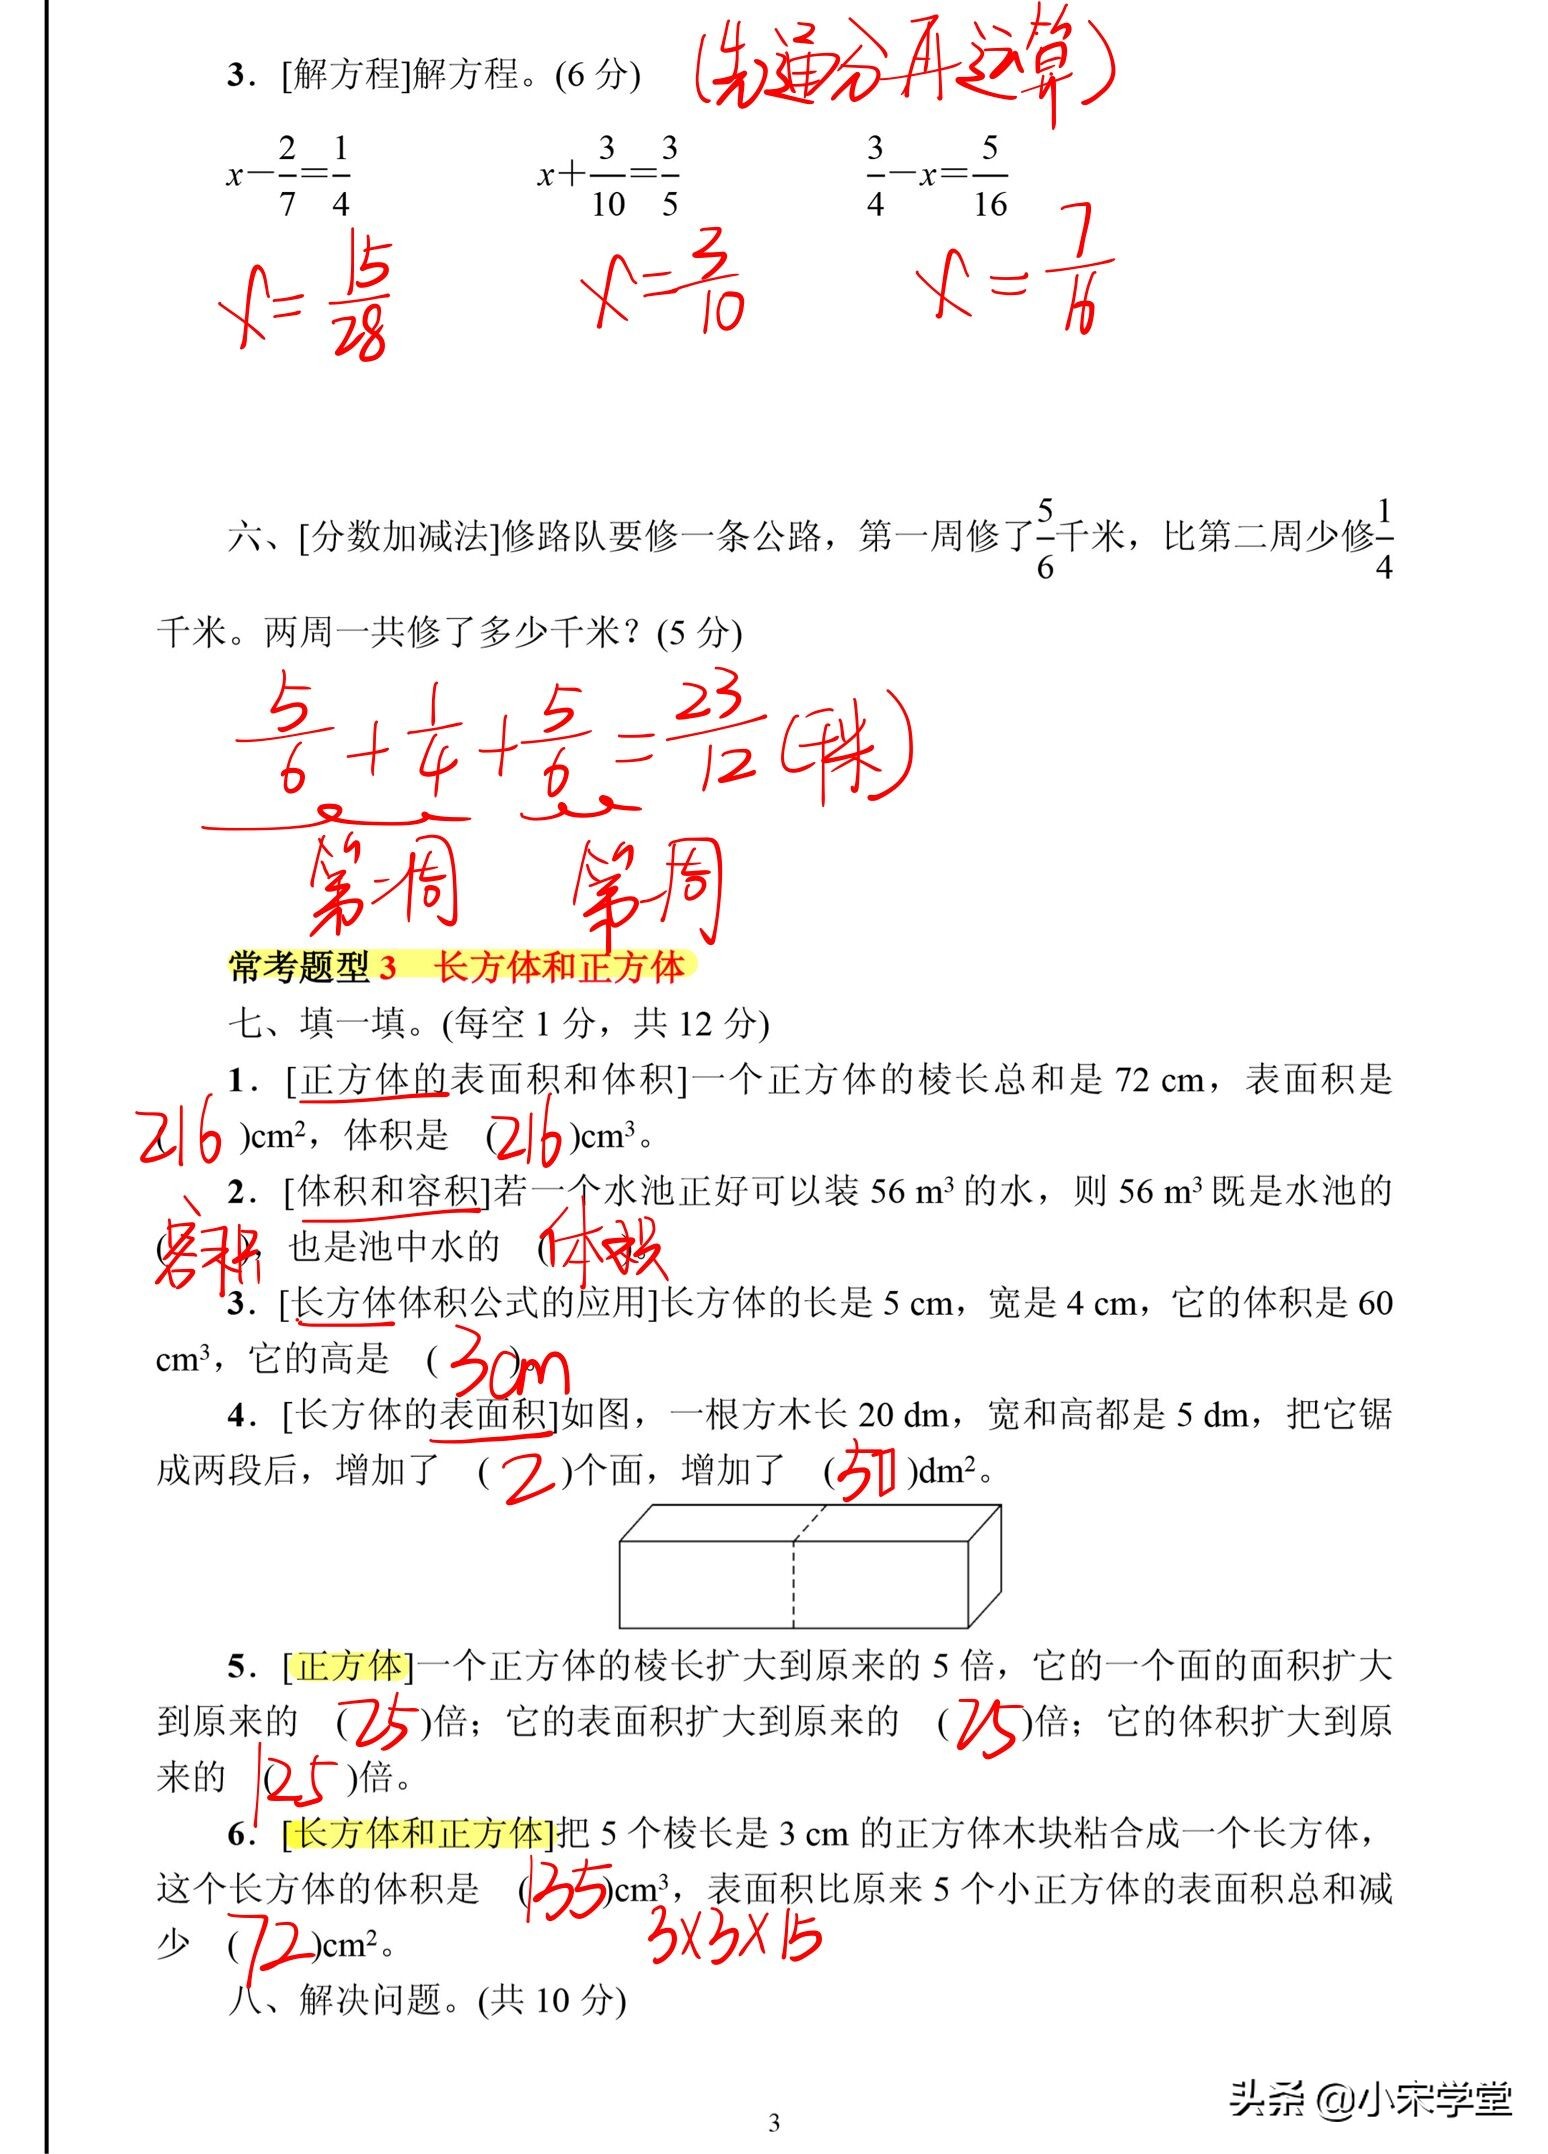 3．[解方程]解方程。(6 分) (先通分再运算)
x－2/7＝1/4 x＋3/10＝3/5 3/4－x＝5/16
x=15/28 x=3/10 x=7/16
六、[分数加减法]修路队要修一条公路，第一周修了5/6千米，比第二周少修1/4
千米。两周一共修了多少千米？(5 分)
5/6+1/4+5/6=23/12(千米)
第二周 第一周
常考题型 3 长方体和正方体
七、填一填。(每空 1 分，共 12 分)
1．[正方体的表面积和体积]一个正方体的棱长总和是 72 cm，表面积是
(216)cm²，体积是 (216)cm³。
2．[体积和容积]若一个水池正好可以装 56 m³ 的水，则 56 m³ 既是水池的
(容积)，也是池中水的 (体积)。
3．[长方体体积公式的应用]长方体的长是 5 cm，宽是 4 cm，它的体积是 60
cm³，它的高是 (3cm)。
4．[长方体的表面积]如图，一根方木长 20 dm，宽和高都是 5 dm，把它锯
成两段后，增加了 (2)个面，增加了 (50)dm²。
5．[正方体]一个正方体的棱长扩大到原来的 5 倍，它的一个面的面积扩大
到原来的 (25)倍；它的表面积扩大到原来的 (25)倍；它的体积扩大到原
来的 (125)倍。
6．[长方体和正方体]把 5 个棱长是 3 cm 的正方体木块粘合成一个长方体，
这个长方体的体积是 (135)cm³，表面积比原来 5 个小正方体的表面积总和减
少 (72)cm²。 3×3×15
八、解决问题。(共 10 分)
头条 @小宋学堂
3